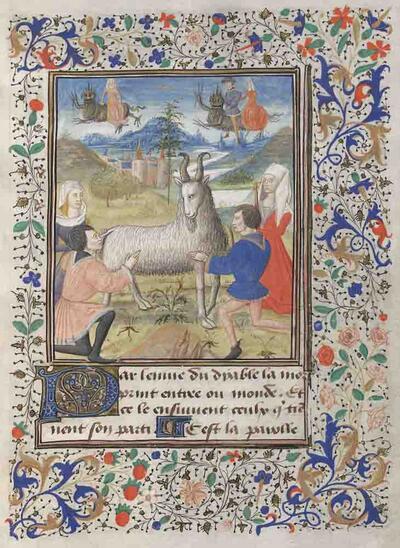 Par lenuie du dyable la mort
print entree ou monde. Et
ce le ensuiuent ceulx q̃ tie
nent son parti Cest la parolle